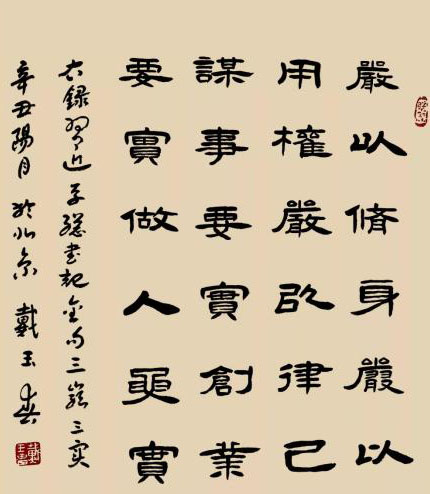 嚴以脩身嚴以
用權嚴以律己
謀事要實創業
要實做人要實
右録習近平總書記金句三嚴三实
辛丑陽月於北京 戴玉春